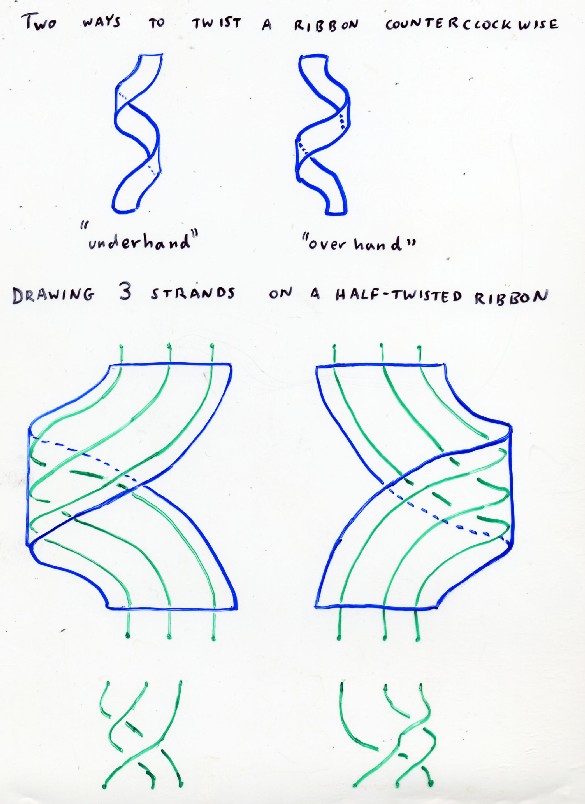 TWO WAYS TO TWIST A RIBBON COUNTERCLOCKWISE
"underhand" "overhand"
DRAWING 3 STRANDS ON A HALF-TWISTED RIBBON